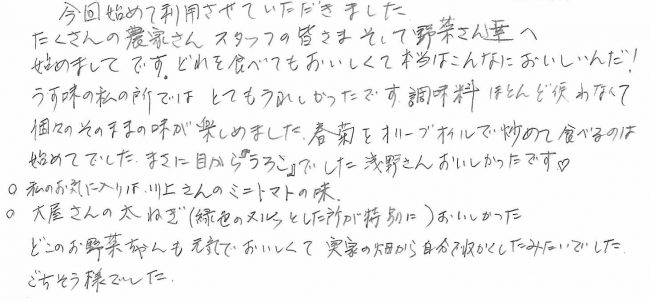 今回始めて利用させていただきました
たくさんの農家さん スタッフの皆さま そして野菜さん達へ
始めましてです。どれを食べてもおいしくて本当はこんなにおいしいんだ!
うす味の私の所では とてもうれしかったです。調味料 ほとんど使わなくて
個々のそのままの味が楽しめました。春菊をオリーブオイルで炒めて食べるのは
始めてでした。まさに目から『うろこ』でした 浅野さんおいしかったです♡
○ 私のお気に入りは 川上さんのミニトマトの味。
○ 大屋さんの太ねぎ(緑色のヌルっとした所が特別に)おいしかった
どこのお野菜ちゃんも元気でおいしくて 実家の畑から自分で収かくしたみたいでした。
ごちそう様でした。